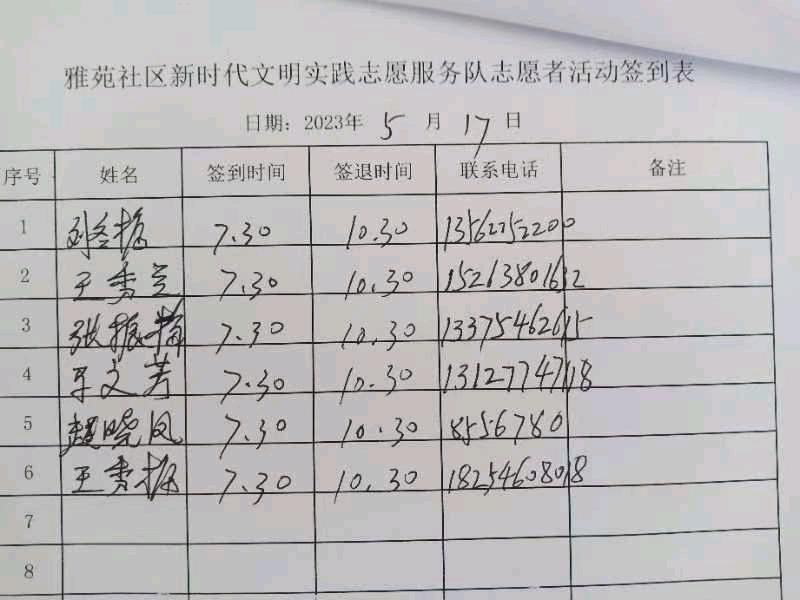 雅苑社区新时代文明实践志愿服务队志愿者活动签到表
日期：2023年 5 月 17 日
序号 姓名 签到时间 签退时间 联系电话 备注
1 刘冬梅 7.30 10.30 13562752200
2 王秀兰 7.30 10.30 15263801612
3 张振梅 7.30 10.30 13375462615
4 王文芳 7.30 10.30 13127747118
5 赵晓凤 7.30 10.30 8556780
6 王秀梅 7.30 10.30 18254608018
7
8